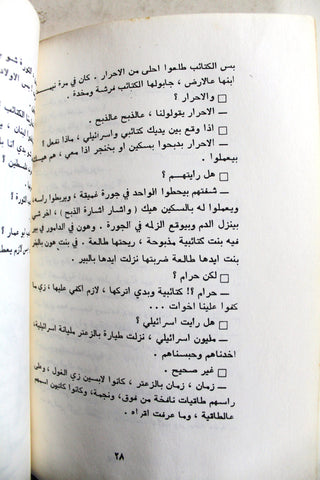 بس الكتائب طلعوا احلى من الاحرار . كان في مرة نيمت
ابنها عالارض ، جابولها الكتائب فرشة ومخدة .
□ والاحرار ؟
— الاحرار يقولولنا ، عالذبح عالذبح .
□ اذا وقع بين يديك كتائبي واسرائيلي ، ماذا تفعل ؟
— الاحرار بدبحوا بسكين او بخنجر اذا معي ، هم هيك
بيعملوا .
□ هل رايتهم ؟
— شفتهم بيحطوا الواحد في جورة غميقة ، ويربطوا راسه
وبعملوا له بالسكين هيك ( واشار اشارة الذبح ) ، اخر شي
بينزل الدم وبيوقع الزلمه في الجورة . وهون في الدامور في
فيه بنت كتائبية مذبوحة ، ريحتها طالعة . في بنت هون
طالعة ايدها ضربتها نزلت ايدها بالبير .
□ لكن حرام ؟
— حرام ؟! كتائبية وبدي اتركها ، لازم اكفي عليها ، زي ما
كفوا علينا اخوات ...
□ هل رايت اسرائيلي ؟
— مليون اسرائيلي ، نزلت طيارة بالزعتر مليانة اسرائيلية،
اخدناهم وحبسناهم .
□ غير صحيح .
— زمان ، زمان بالزعتر ، كانوا لابسين زي الغول ، وعلى
راسهم طاقيات نافخة من فوق، ونجمة، وكانوا كاتبين اسهم
عالطاقية ، وما عرفت اقراه .
٢٨